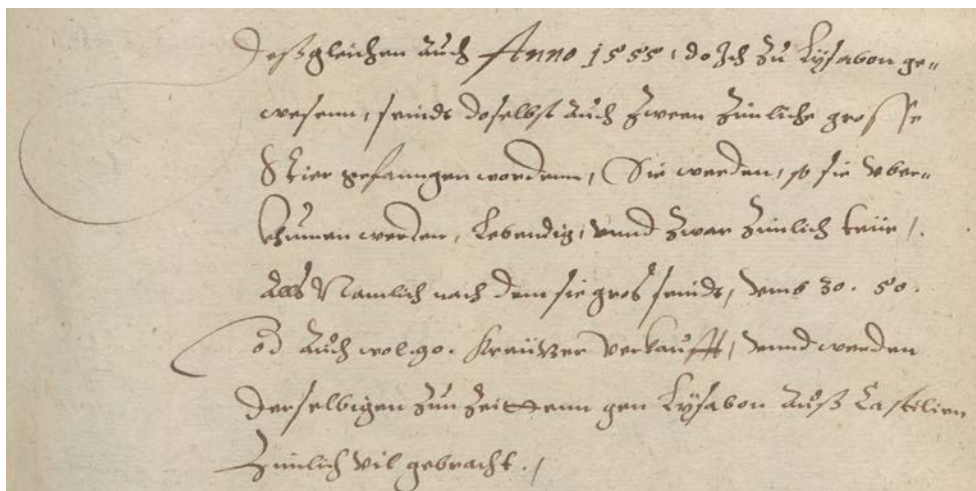 Deßgleichen auch Anno 1555, do Ich zu Lÿsabon ge„
wesenn, seinds doselbst auch zween zimliche grosse
Stier gefanngen wordenn, Sie werden, so sie vber„
khumen werden, Lebendig, vnnd zwar zimlich teüer /.
Alls Namlich nach dem sie gros seinds, vmb 30. 50.
od auch wol 90. Kreützer verkaufft, vnnd werden
derselbigen zun Zeittenn gen Lÿsabon auß Castilien
zimlich vil gebracht. /